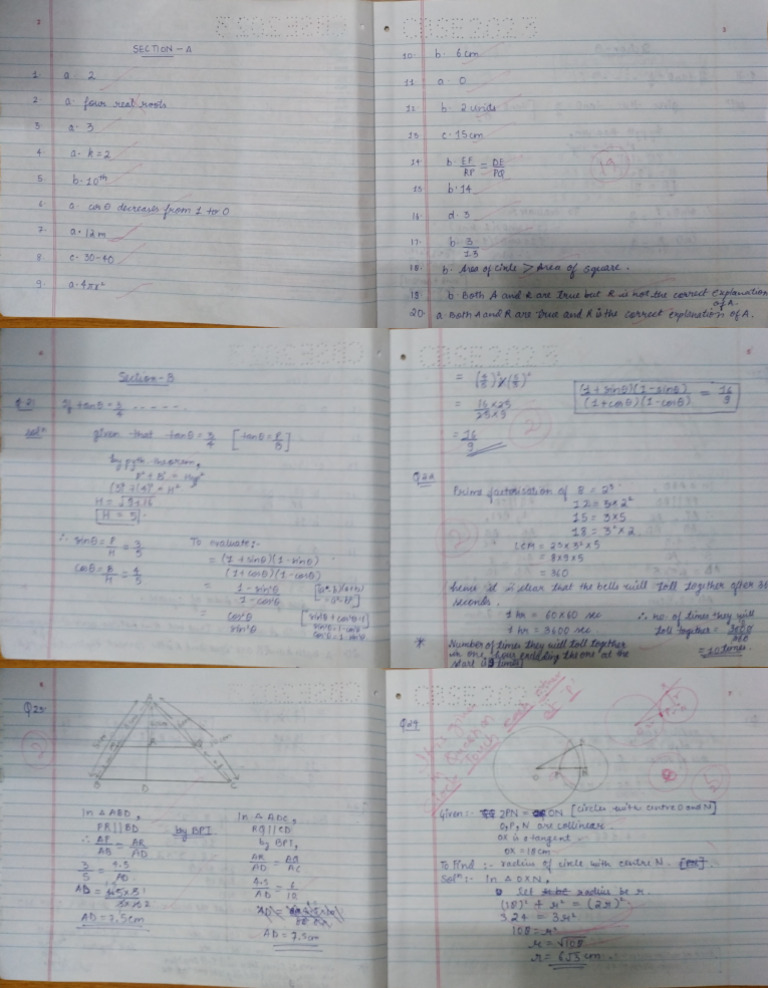 SECTION-A
1. a. 2
2. a. four real roots
3. a. 3
4. a. k=2
5. b. 10th
6. a. cosθ decreases from 1 to 0
7. a. 12m
8. c. 30-40
9. a. 4πr²
3
10. b. 6cm
11. a. 0
12. b. 2 units
13. c. 15cm
14. b. EF/RP = DE/PQ
19
15. b. 14
16. d. 3
17. b. 3/13
18. b. Area of circle > Area of square.
19. b. Both A and R are true but R is not the correct explanation of A.
20. a. Both A and R are true and R is the correct explanation of A.
Section-B
Q.21 If tanθ = 3/4 - - - - -
Solⁿ given that tanθ = 3/4 [tanθ = P/B]
by pyth. theorem,
H = √9+16
[H = 5]
∴ sinθ = P/H = 3/5
cosθ = B/H = 4/5
To evaluate:-
= (1+sinθ)(1-sinθ)
(1+cosθ)(1-cosθ)
= 1-sin²θ
1-cos²θ
= cos²θ
sin²θ
[sin²θ+cos²θ=1
5
= 16×25
25×9
= 16
9
(1+sinθ)(1-sinθ) = 16
(1+cosθ)(1-cosθ) 9
2
Prime factorisation of 8 = 2³
12 = 3×2²
15 = 3×5
18 = 3²×2
LCM = 23×3²×5
= 8×9×5
= 360
hence it is clear that the bells will toll together after
seconds.
1 hr = 60×60 sec
1 hr = 3600 sec
∴ no. of times they will
toll together = 3600
360
= 10 times
* Number of times they will toll together
in one hour excluding the one at the
start is 9 times
Q23.
2
A
B D C
In △ABD,
PR||BD
by BPT
∴ AP/AB = AR/AD
3/5 = 4.5/AD
AD = 7.5cm
In △ADC,
RQ||CD
by BPT,
AR/AD = AQ/AC
AD = 7.5cm
Q24
Given:- 2PN = ON [circles with centre O and N]
O, P, N are collinear.
OX is a tangent
OX = 18cm
To Find :- radius of circle with centre N.
Solⁿ:- In △OXN,
let radius be r.
(18)² + r² = (2r)²
324 = 3r²
108 = r²
r = √108
r = 6√3 cm